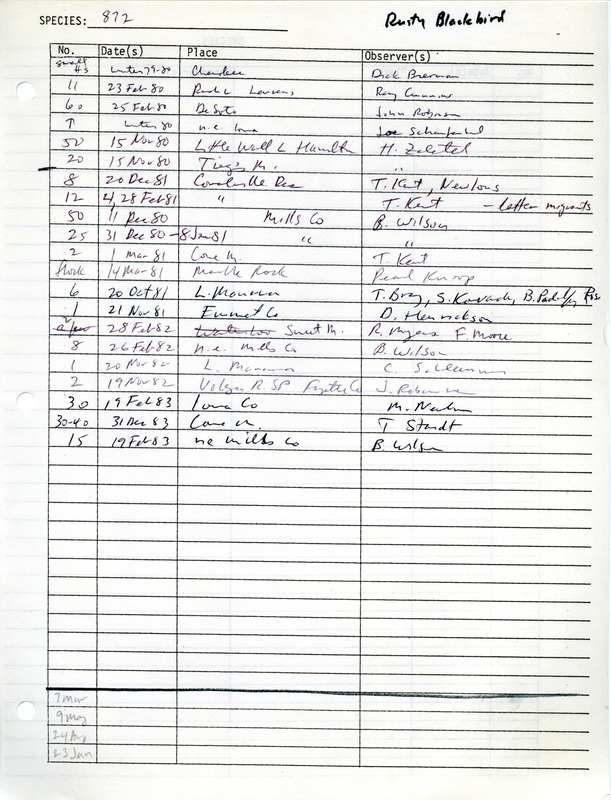 SPECIES: 872 Rusty Blackbird
No. Date(s) Place Observer(s)
small #s winter 79-80 Cherokee Dick Bierman
11 23 Feb 80 Ray Cummins
60 25 Feb 80 DeSoto John Robinson
1 winter 80 n.e. Iowa Joe Schaufenbuel
50 15 Nov 80 Little Wall L Hamilton H. Zaletel
20 15 Nov 80 M. "
8 20 Dec 81 Coralville Res T. Kent, Newlons
12 4, 28 Feb 81 " T. Kent - latter migrants
50 11 Dec 80 Mills Co B. Wilson
25 31 Dec 80 - 8 Jan 81 " "
2 1 Mar 81 Cone M. T. Kent
flock 14 Mar 81 Marble Rock Pearl Knoop
6 20 Oct 81 L. Manawa T. Bray, S. Kovach, B. Padelford
1 21 Nov 81 Emmet Co D. Henrickson
a few 28 Feb 82 Sweet M. R. Myers F. Moore
8 26 Feb 82 n.e. Mills Co B. Wilson
1 20 Nov 82 L. Manawa
2 19 Nov 82 Volga R. SP Fayette Co J. Robinson
30 19 Feb 83 Iowa Co M. Newlon
30-40 31 Dec 83 Cone M. T Staudt
15 19 Feb 83 ne Mills Co B. Wilson
7 Mar
9 May
24 Aug
23 Jan